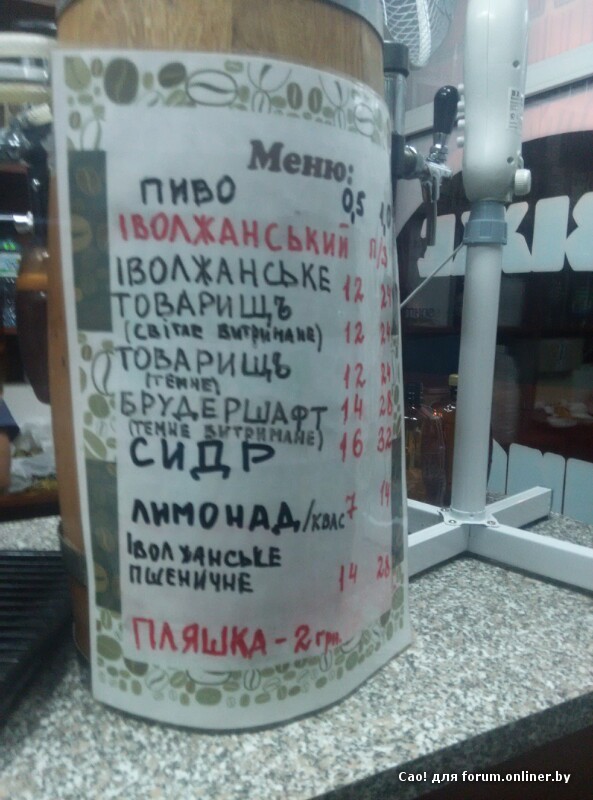 Меню:
ПИВО 0,5 1,0
ІВОЛЖАНСЬКИЙ П/З
ІВОЛЖАНСЬКЕ 12 24
ТОВАРИЩЪ
(СВІТЛЕ ВИТРИМАНЕ) 12 24
ТОВАРИЩЪ
(ТЕМНЕ) 12 24
БРУДЕРШАФТ 14 28
(ТЕМНЕ ВИТРИМАНЕ)
СИДР 16 32
ЛИМОНАД/КВАС 7 14
ІВОЛЖАНСЬКЕ
ПШЕНИЧНЕ 14 28
ПЛЯШКА - 2 грн.
Cao! для forum.onliner.by